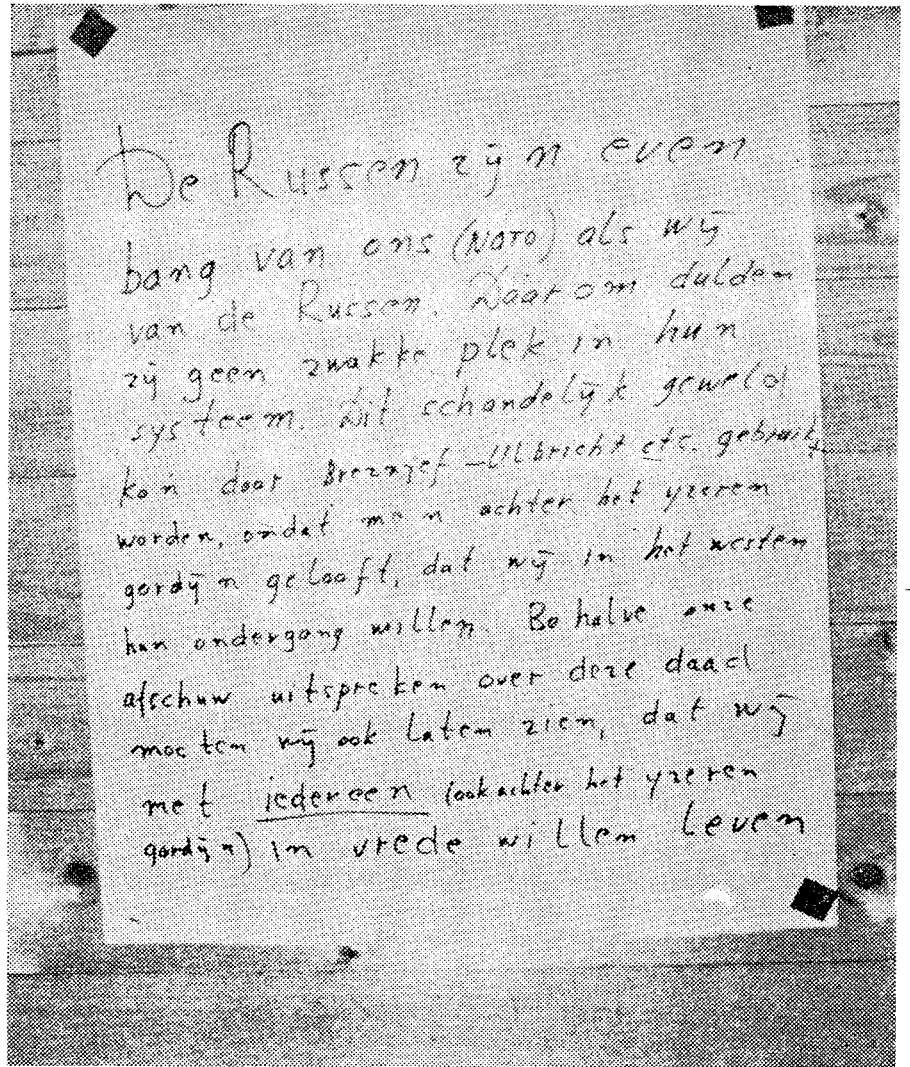 De Russen zijn even
bang van ons (NATO) als wij
van de Russen. Daarom dulden
zij geen zwakke plek in hun
systeem. Dit schandelijk geweld
kon door Breznjef-Ulbricht etc. gebruikt
worden, omdat men achter het yzeren
gordijn gelooft, dat wij in het westen
hun ondergang willen. Behalve onze
afschuw uitspreken over deze daad
moeten wij ook laten zien, dat wij
met iedereen (ook achter het yzeren
gordijn) in vrede willen leven